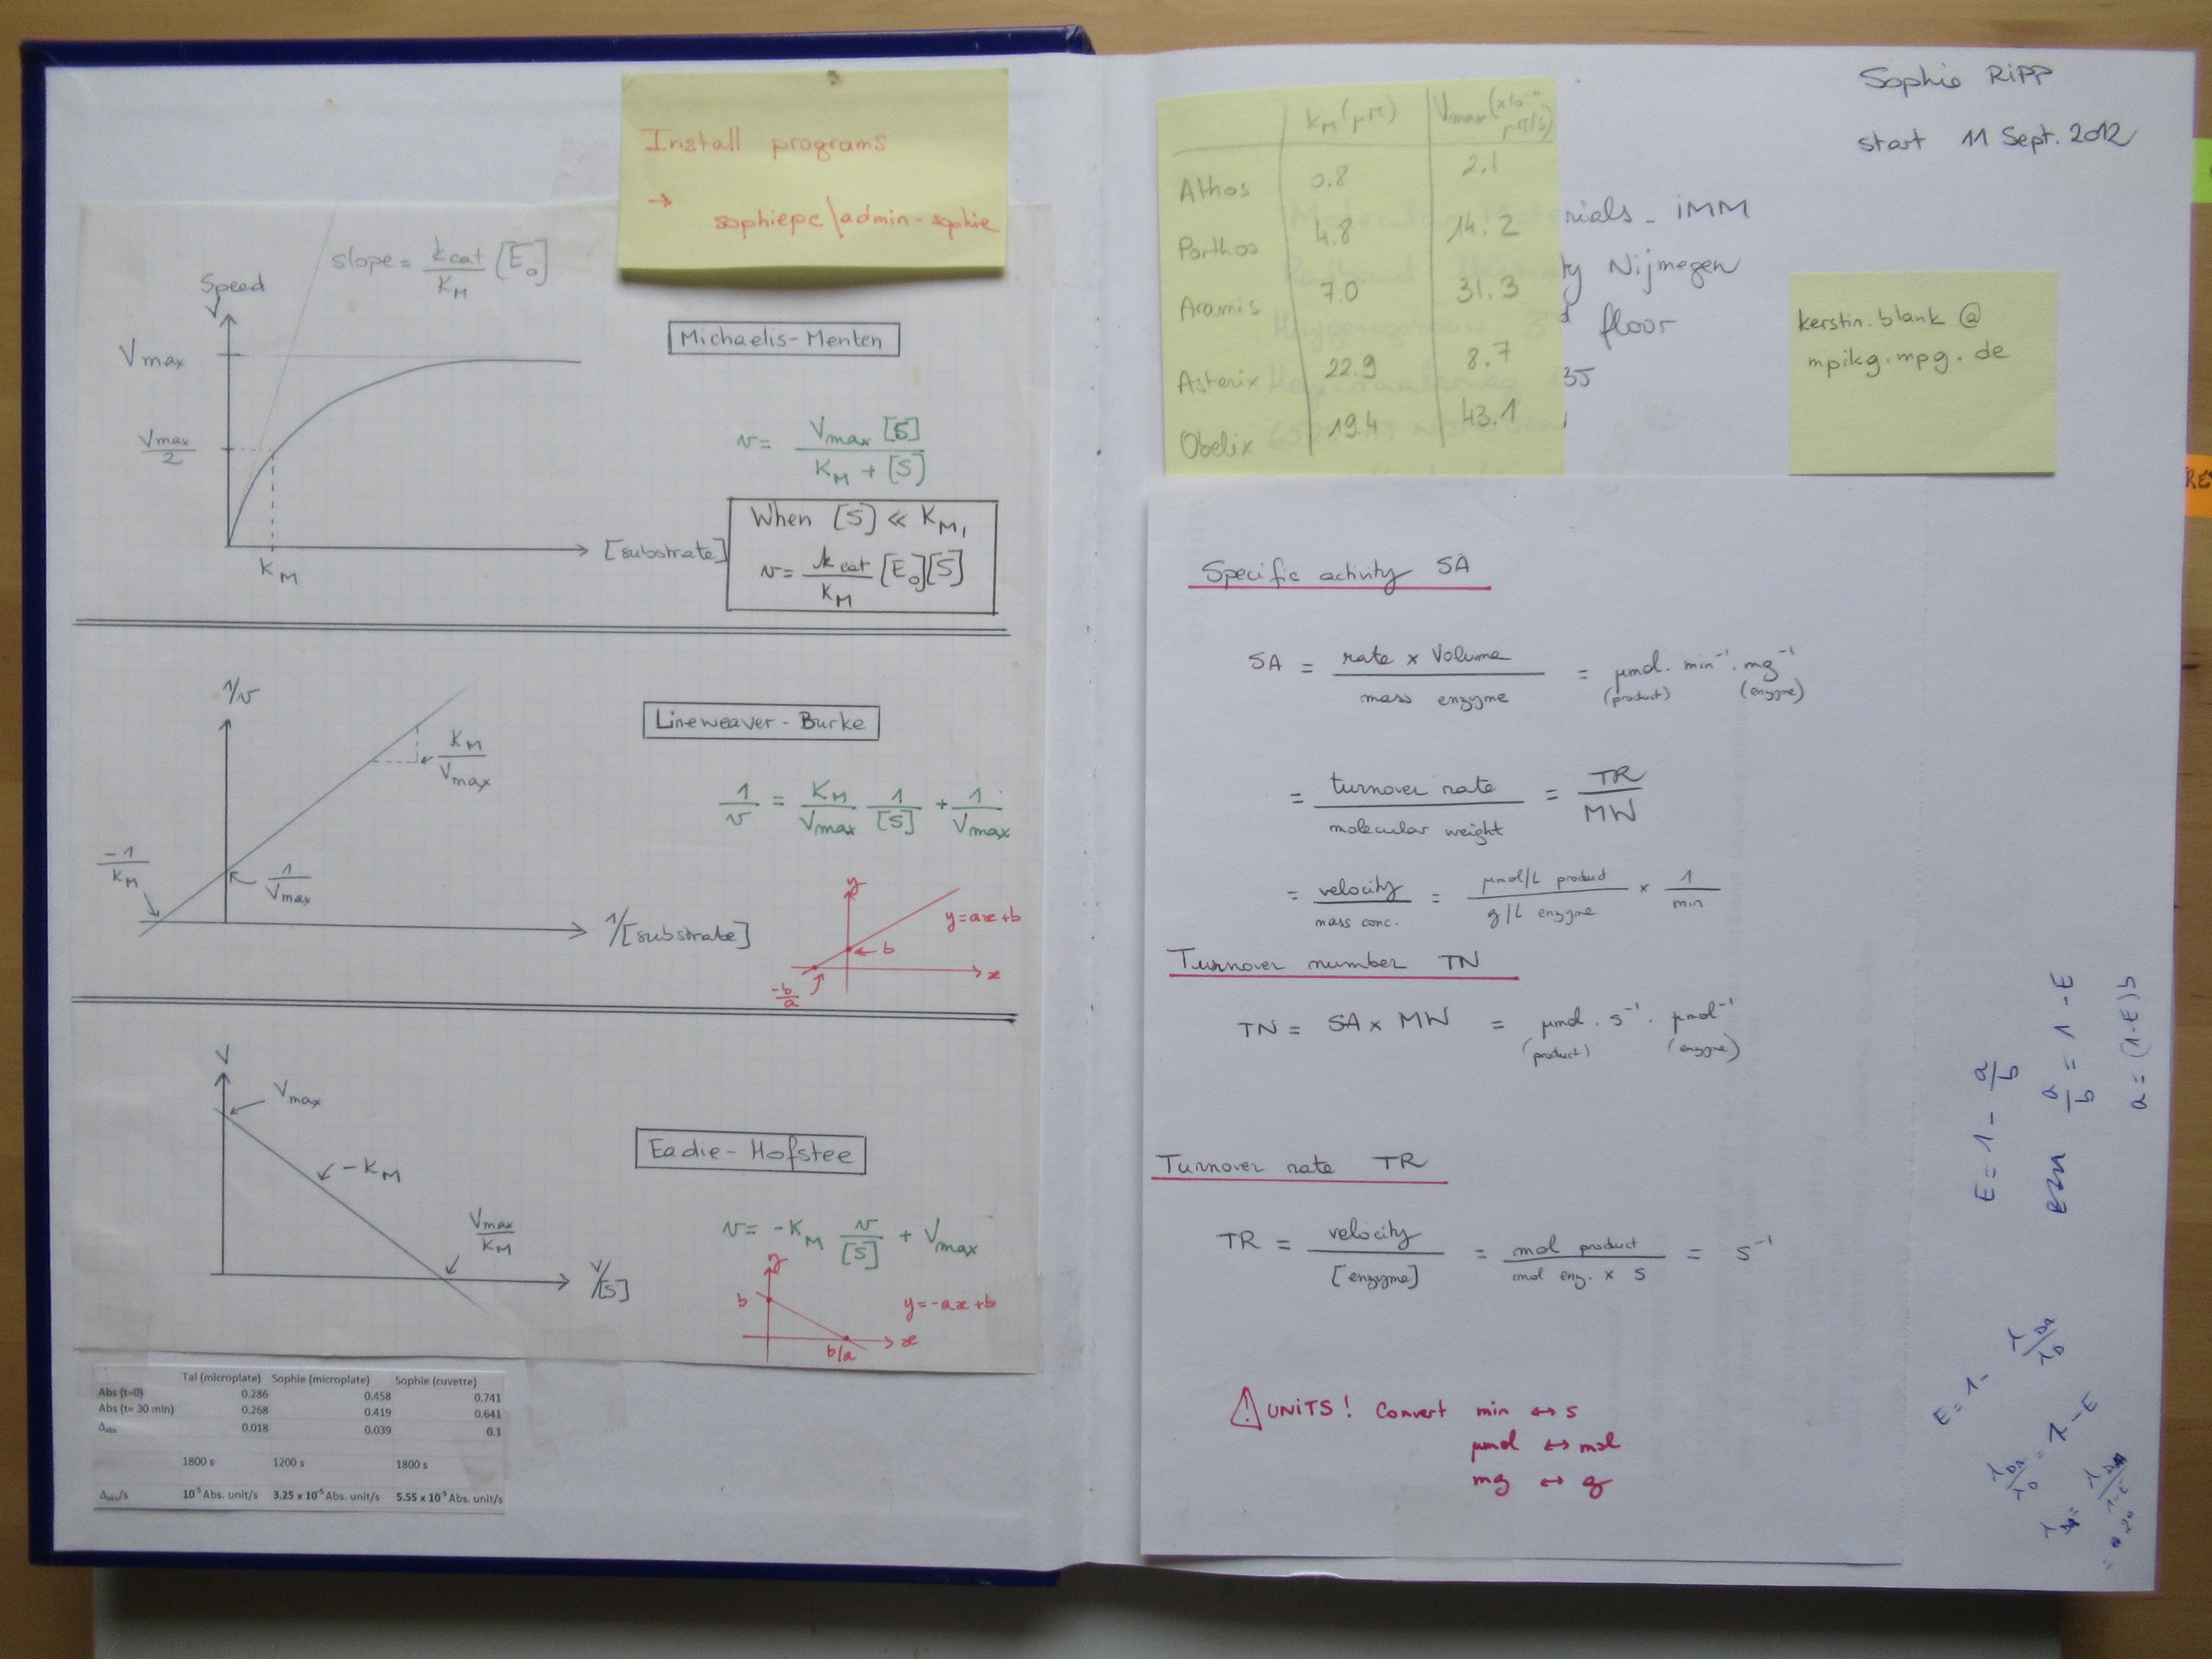 Install programs
→ sophiepc\admin-sophie
slope = kcat/KM [E₀]
Speed
Vmax
Vmax/2
KM
[substrate]
Michaelis-Menten
v = Vmax [S] / KM + [S]
When [S] << KM,
v = kcat/KM [E₀][S]
1/v
KM/Vmax
-1/KM
1/Vmax
1/[substrate]
Lineweaver - Burke
1/v = KM/Vmax 1/[S] + 1/Vmax
y
y = ax + b
b
x
-b/a
V
Vmax
-KM
Vmax/KM
V/[S]
Eadie - Hofstee
v = -KM v/[S] + Vmax
y
b
y = -ax + b
x
b/a
Tal (microplate) Sophie (microplate) Sophie (cuvette)
Abs (t=0) 0.286 0.458 0.741
Abs (t= 30 min) 0.268 0.419 0.641
Δabs 0.018 0.039 0.1
1800 s 1200 s 1800 s
Δabs/s 10⁻⁵ Abs. unit/s 3.25 x 10⁻⁵ Abs. unit/s 5.55 x 10⁻⁵ Abs. unit/s
Sophie RIPP
start 11 Sept. 2012
KM (µM) Vmax (µM/s)
Athos 0.8 2.1
Porthos 4.8 14.2
Aramis 7.0 31.3
Asterix 22.9 8.7
Obelix 19.4 43.1
Materials - IMM
Nijmegen
floor
35
kerstin.blank @
mpikg.mpg.de
Specific activity SA
SA = rate x Volume / mass enzyme = µmol. min⁻¹. mg⁻¹
(product) (enzyme)
= turnover rate / molecular weight = TR/MW
= velocity / mass conc. = µmol/L product / g/L enzyme x 1/min
Turnover number TN
TN = SA x MW = µmol. s⁻¹. µmol⁻¹
(product) (enzyme)
Turnover rate TR
TR = velocity / [enzyme] = mol product / mol enz. x s = s⁻¹
⚠ UNITS! Convert min ↔ s
µmol ↔ mol
mg ↔ g
E = 1 - a/b
a/b = 1 - E
a = (1-E)b
E = 1 -